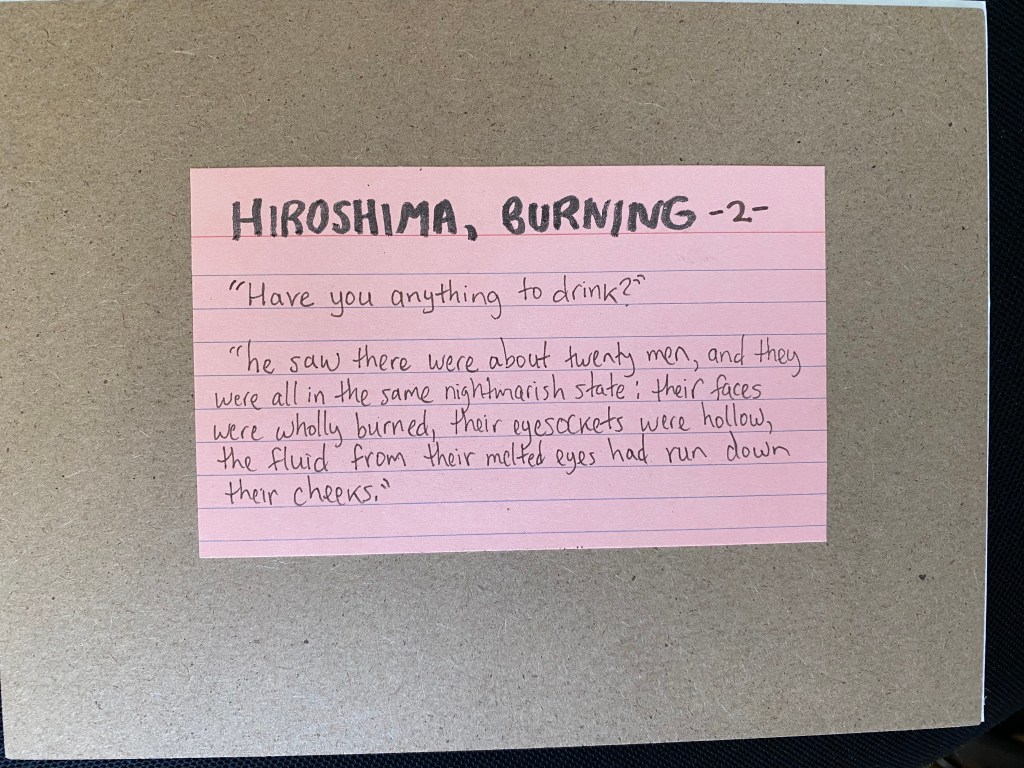 HIROSHIMA, BURNING -2-
"Have you anything to drink?"
"he saw there were about twenty men, and they
were all in the same nightmarish state: their faces
were wholly burned, their eyesockets were hollow,
the fluid from their melted eyes had run down
their cheeks."